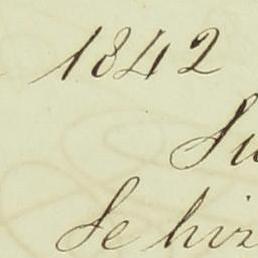 1842
Su
Se hiz